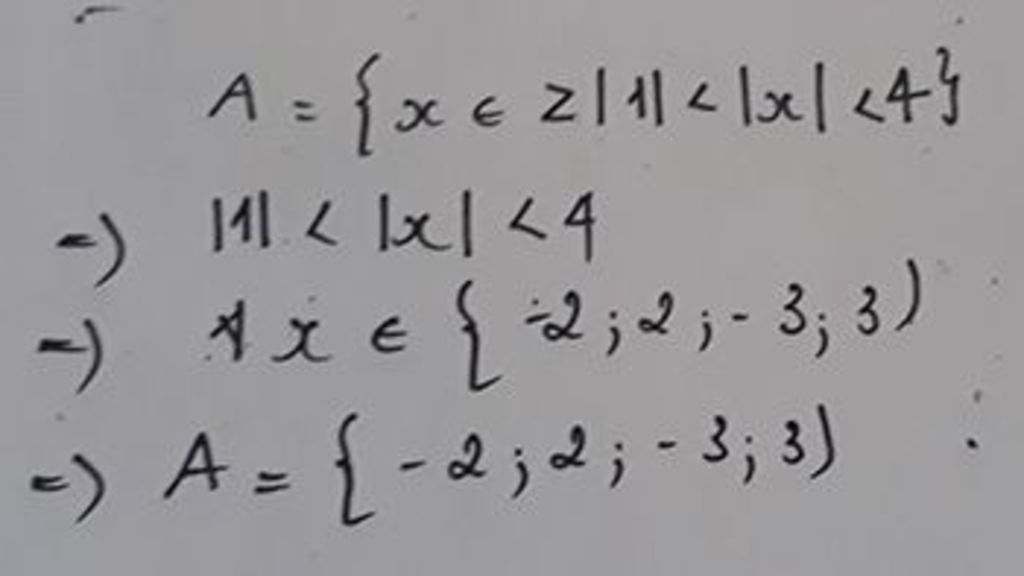 A = {x ∈ Z | |1| < |x| < 4}
=) |1| < |x| < 4
=) x ∈ { -2 ; 2 ; - 3 ; 3 )
=) A = { - 2 ; 2 ; - 3 ; 3 )